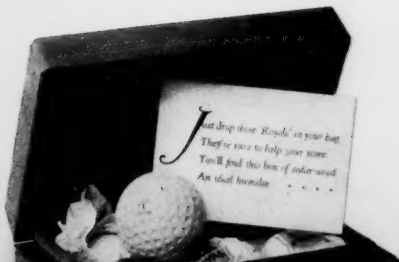 Just drop these "Royals" in your bag
They're sure to help your score.
You'll find this box of cedar-wood
An ideal humidor . . . .